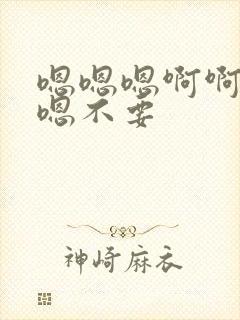 嗯嗯嗯啊啊
嗯不要
神崎麻衣